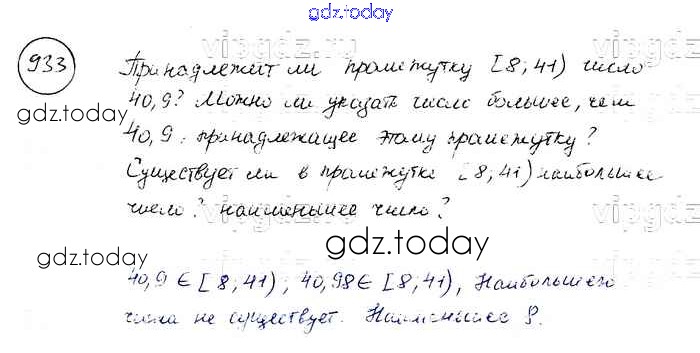 gdz.today
933
Принадлежит ли промежутку [8; 41) число
40,9? Можно ли указать число большее, чем
gdz.today
40,9, принадлежащее этому промежутку?
Существует ли в промежутке [8; 41) наибольшее
число? наименьшее число?
gdz.today
gdz.today
40,9 ∈ [8; 41); 40,98 ∈ [8; 41), Наибольшего
числа не существует. Наименьшее 8.